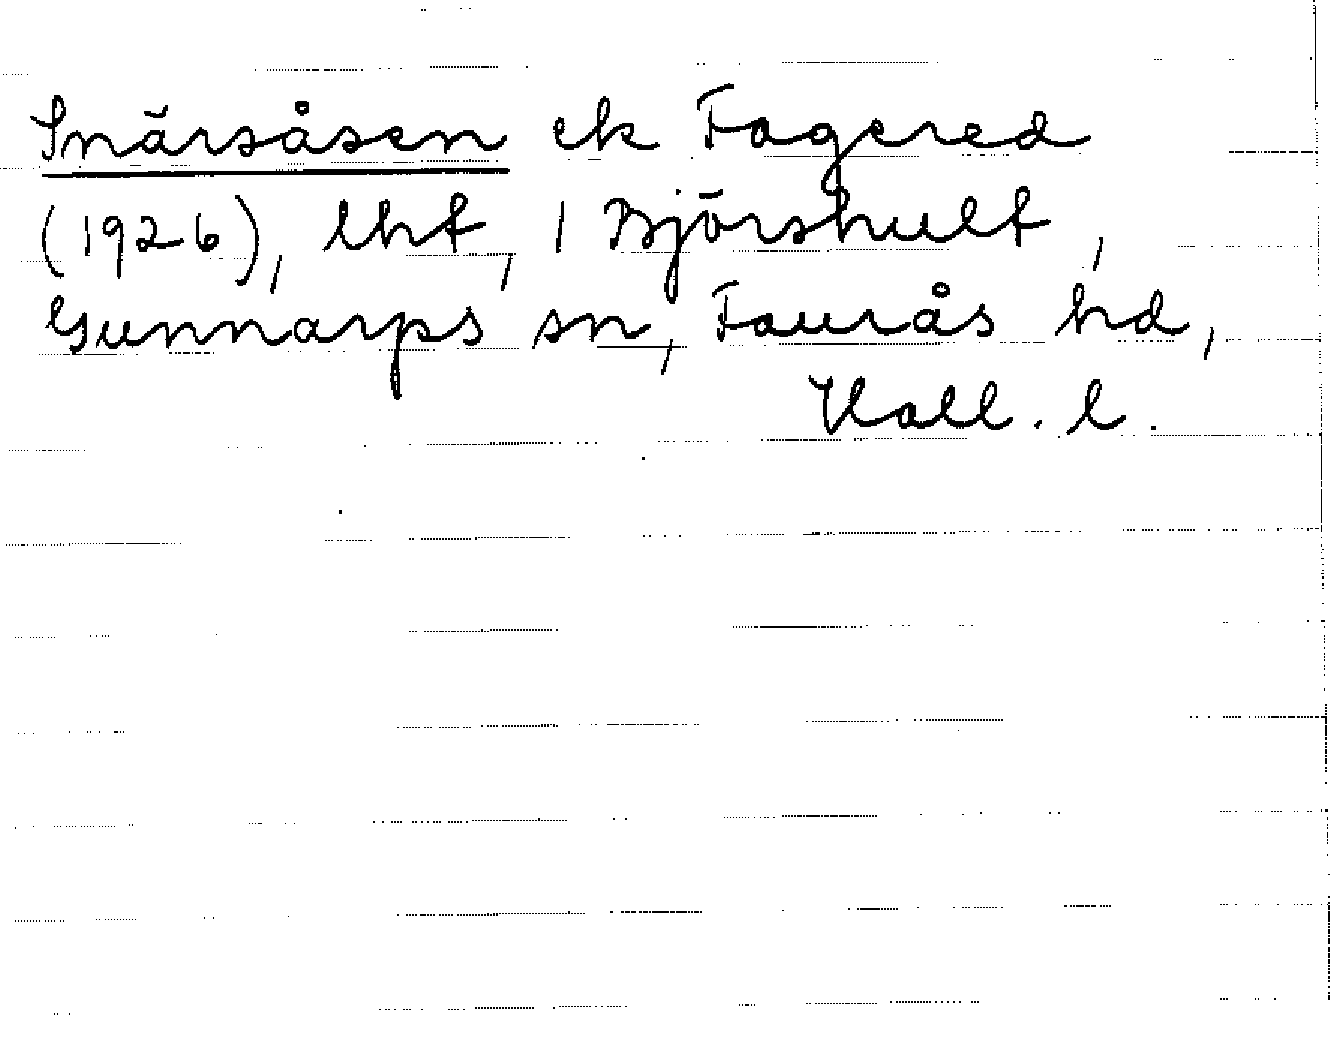 Snärsåsen ek Fagered
(1926), lht, 1 Björshult,
Gunnarps sn, Faurås hd,
Hall. l.